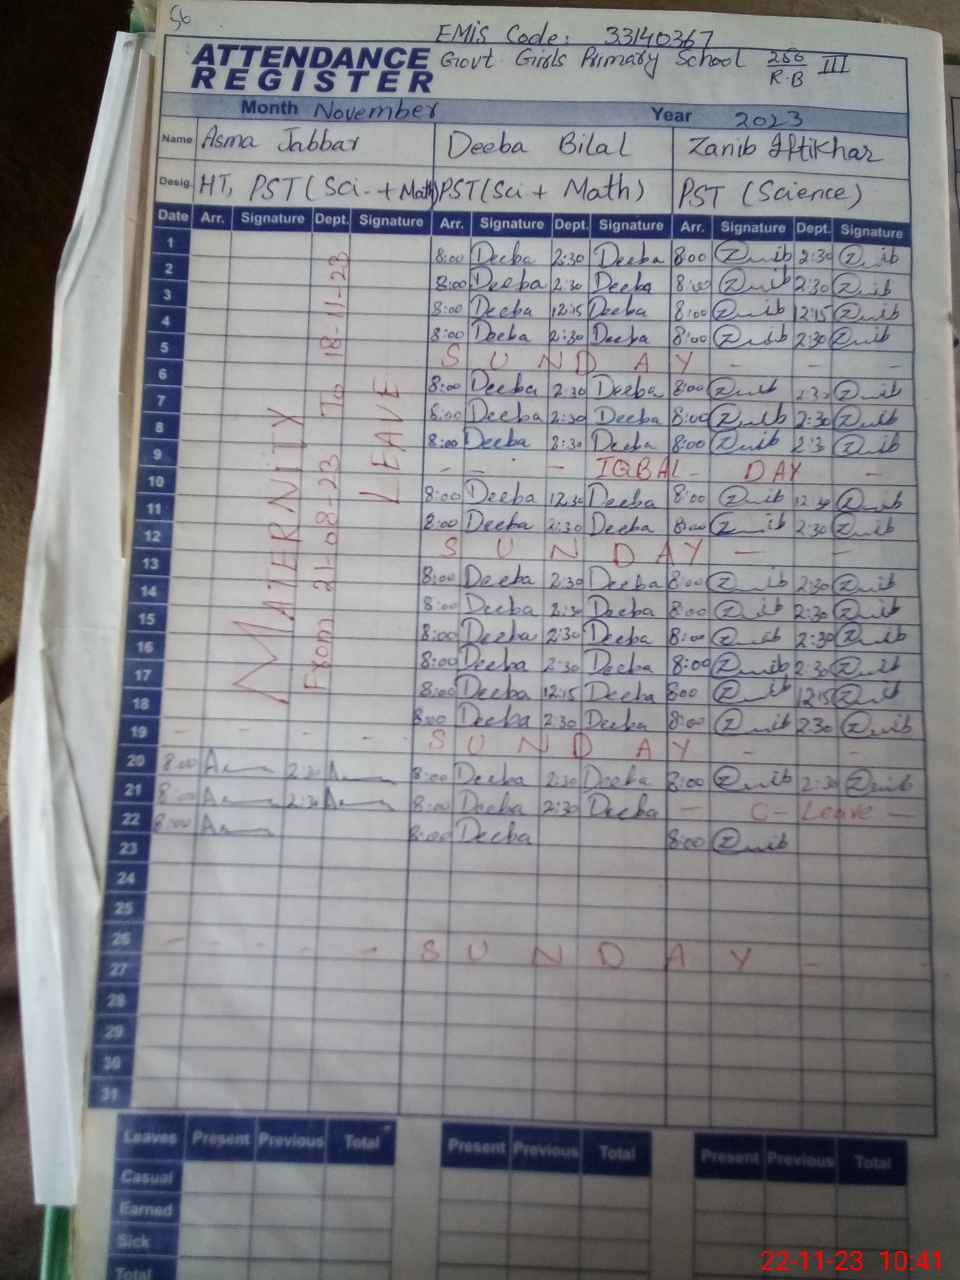 56
EMIS Code: 33140367
ATTENDANCE REGISTER Govt Girls Primary School 256/R.B III
Month November Year 2023
Name Asma Jabbar Deeba Bilal Zanib Iftikhar
Desig. HT, PST (Sci. + Math) PST (Sci + Math) PST (Science)
Date Arr. Signature Dept. Signature Arr. Signature Dept. Signature Arr. Signature Dept. Signature
MATERNITY LEAVE
From 21-08-23 To 18-11-23
1 8:00 Deeba 2:30 Deeba 8:00 Znib 2:30 Znib
2 8:00 Deeba 2:30 Deeba 8:00 Znib 2:30 Znib
3 8:00 Deeba 12:15 Deeba 8:00 Znib 12:15 Znib
4 8:00 Deeba 2:30 Deeba 8:00 Znib 2:30 Znib
5 S U N D A Y - - -
6 8:00 Deeba 2:30 Deeba 8:00 Znib 2:30 Znib
7 8:00 Deeba 2:30 Deeba 8:00 Znib 2:30 Znib
8 8:00 Deeba 8:30 Deeba 8:00 Znib 2:3 Znib
9 - - - IQBAL - DAY -
10 8:00 Deeba 12:30 Deeba 8:00 Znib 12:30 Znib
11 8:00 Deeba 2:30 Deeba 8:00 Znib 2:30 Znib
12 S U N D A Y - -
13 8:00 Deeba 2:30 Deeba 8:00 Znib 2:30 Znib
14 8:00 Deeba 2:30 Deeba 8:00 Znib 2:30 Znib
15 8:00 Deeba 2:30 Deeba 8:00 Znib 2:30 Znib
16 8:00 Deeba 2:30 Deeba 8:00 Znib 2:30 Znib
17 8:00 Deeba 12:15 Deeba 8:00 Znib 12:15 Znib
18 8:00 Deeba 2:30 Deeba 8:00 Znib 2:30 Znib
19 - - - - - S U N D A Y - -
20 8:00 2:30 8:00 Deeba 2:30 Deeba 8:00 Znib 2:30 Znib
21 8:00 2:30 8:00 Deeba 2:30 Deeba - C- Leave -
22 8:00 8:00 Deeba 8:00 Znib
23
24
25
26 - - - - - S U N D A Y - -
27
28
29
30
31
Leaves Present Previous Total Present Previous Total Present Previous Total
Casual
Earned
Sick
Total
22-11-23 10:41